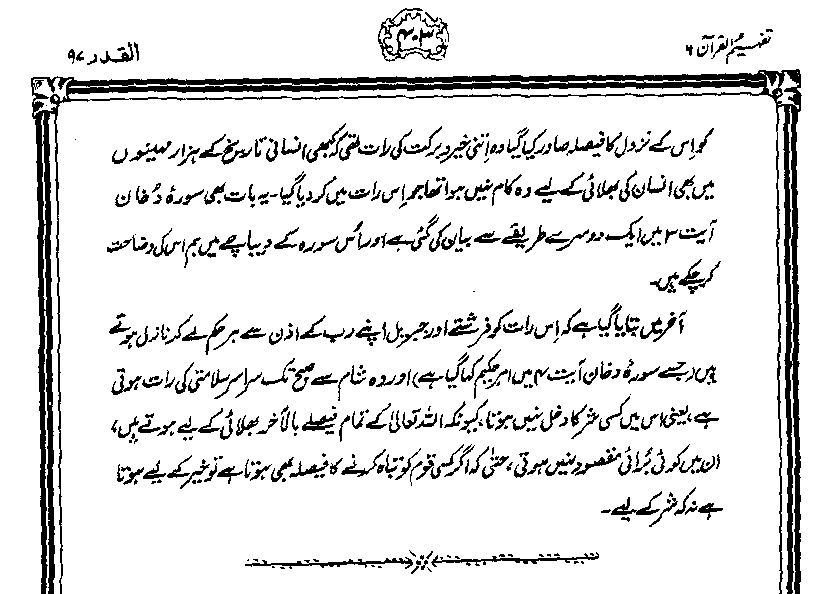 تفہیم القرآن ۶
۴۰۳
القدر ۹۷
کو اِس کے نزول کا فیصلہ صادر کیا گیا وہ اِتنی خیر و برکت کی رات تھی کہ کبھی انسانی تاریخ کے ہزار مہینوں
میں بھی انسان کی بھلائی کے لیے وہ کام نہیں ہوا تھا جو اِس رات میں کر دیا گیا۔ یہ بات بھی سورۂ دُخان
آیت ۳ میں ایک دوسرے طریقے سے بیان کی گئی ہے اور اُس سورہ کے دیباچے میں ہم اس کی وضاحت
کر چکے ہیں۔
آخر میں بتایا گیا ہے کہ اِس رات کو فرشتے اور جبریل اپنے رب کے اذن سے ہر حکم لے کر نازل ہوتے
ہیں (جسے سورۂ دخان آیت ۴ میں امر حکیم کہا گیا ہے) اور وہ شام سے صبح تک سراسر سلامتی کی رات ہوتی
ہے، یعنی اس میں کسی شر کا دخل نہیں ہوتا، کیونکہ اللہ تعالیٰ کے تمام فیصلے بالآخر بھلائی کے لیے ہوتے ہیں،
ان میں کوئی بُرائی مقصود نہیں ہوتی، حتیٰ کہ اگر کسی قوم کو تباہ کرنے کا فیصلہ بھی ہوتا ہے تو خیر کے لیے ہوتا
ہے نہ کہ شر کے لیے۔